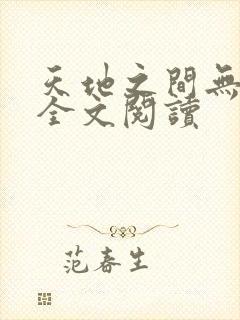 天地之間無
全文閱讀
范春生